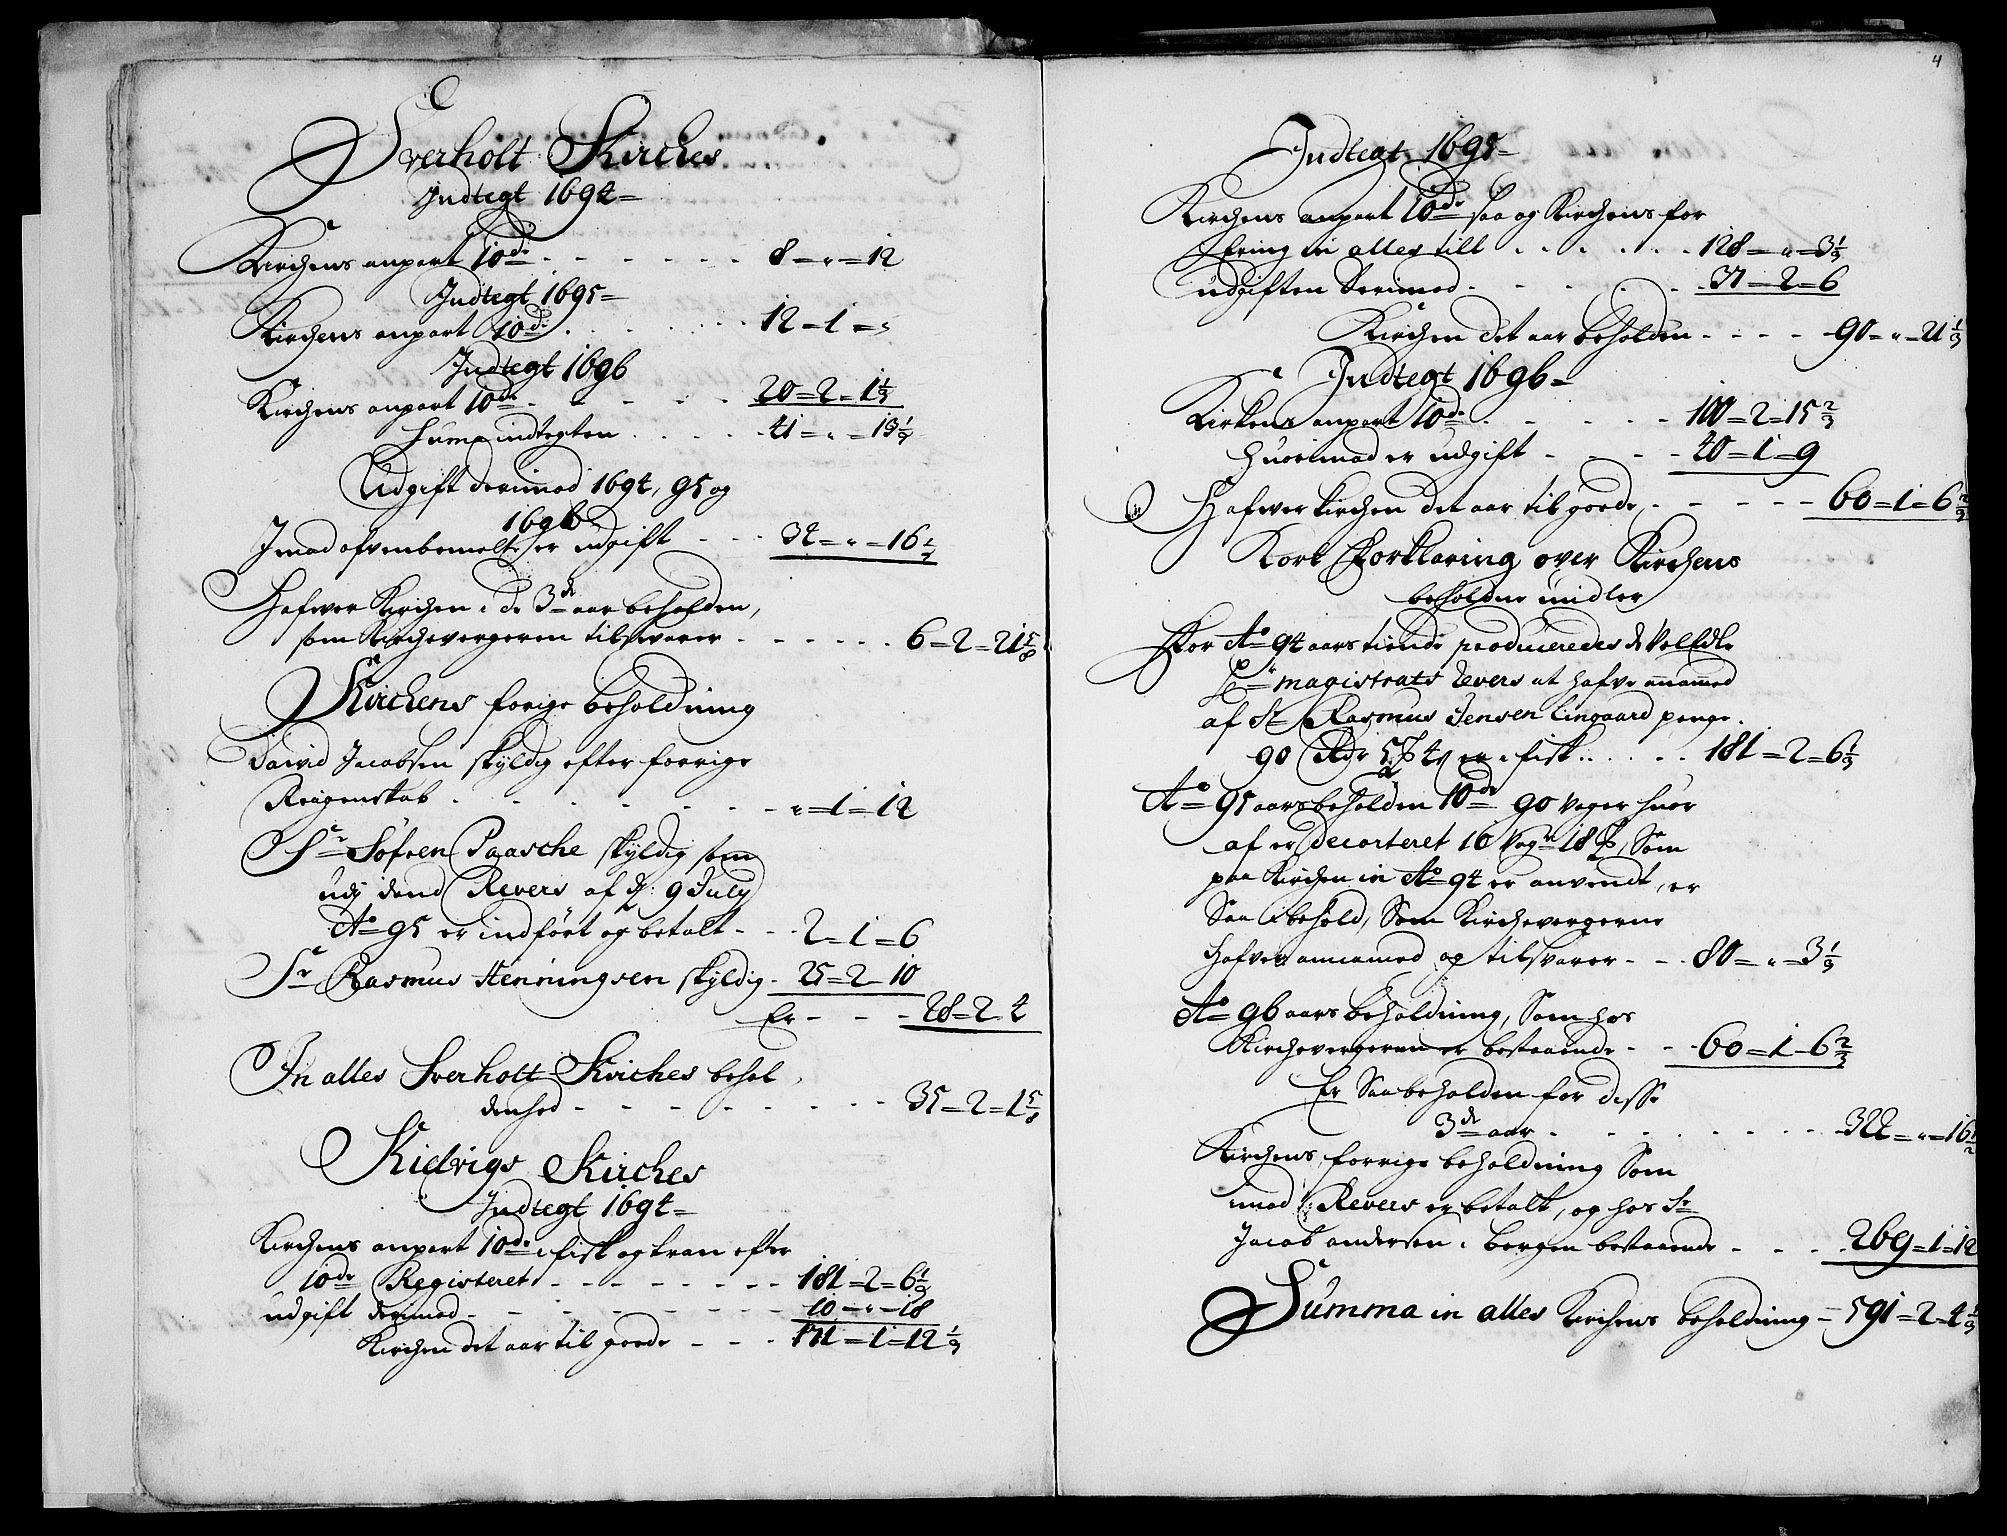 Sverholt Kirches
Indtegt 1694 =
Kirchens anpart 10de - - - - - - 8 = " = 12
Indtegt 1695 =
Kirchens anpart 10de - - - - - - 12 = 1 = "
Indtegt 1696
Kirchens anpart 10de - - - - - - 20 = 2 = 1 1/3
Suma indtegten - - - - 41 = " = 13 1/3
Udgift derimod 1694, 95 og
1696
Imod ofvenbemelte er udgift - - - 34 = " = 16 1/2
Hafver Kirchen i de 3de aar beholden,
som Kirchevergeren tilsvarer - - - - - - 6 = 2 = 21 5/6
Kirchens forige beholdning
David Jacobsen skyldig efter forrige
Reigenskab - - - - - - - - " = 1 = 12
Sr Sofren Paasche skyldig som
udj dend Revers af d: 9 July
Ao 95 er indfört og betalt - - 2 = 1 = 6
Sr Rasmus Henningsen skyldig - 25 = 2 = 10
Er - - - 28 = 2 = 4
In alles Sverholt Kirches behol
denhed - - - - - - - - 35 = 2 = 1 5/6
Kielvigs Kirches
Indtegt 1694 =
Kirchens anpart 10de i fisk og tran efter
10de Registeret - - - - - - - 181 = 2 = 6 1/3
udgift derimod - - - - - - - - 10 = " = 18
Kirchen det aar til goede - - - 171 = 1 = 12 1/3
4
Indtegt 1695 =
Kirchens anpart 10de saa og Kirchens for
æring in alles till - - - - - - 128 = " = 3 1/3
udgiften derimod - - - - - - 37 = 2 = 6
Kirchen det aar beholden - - - - 90 = " = 21 1/3
Indtegt 1696 =
Kirkens anpart 10de - - - - - - 100 = 2 = 15 2/3
Huorimod er udgift - - - - 40 = 1 = 9
Hafver Kirchen det aar til goede - - - - - 60 = 1 = 6 2/3
Kort Forklaring over Kirchens
beholdne midler
For Ao 94 aars tiende produceredes de Velædle
magistrats Revers at hafve annammed
af Sr Rasmus Jensen Lingaard penge
90 Rdr 5 ß er i fisk - - - - 181 = 2 = 6 1/3
Ao 95 aars beholden 10de 90 voger huor
af er decorteret 10 Vogr 18 , Som
paa Kirchen in Ao 94 er anvendt, er
Saa i behold, Som Kirchevergerne
hafver annamed og tilsvarer - - 80 = " = 3 1/3
Ao 96 aars beholdning, Som hos
Kirchevergeren er bestaaende - - 60 = 1 = 6 2/3
Er Saa beholden for disse
3de aar - - - - - - - - 322 = " = 16 1/2
Kirchens forrige beholdning Som
imod Revers er betalt, og hos Sr
Jacob andersen i Bergen bestaaende - - - - 269 = 1 = 12
Summa in alles Kirchens beholdning = 591 = 2 = 4 1/3